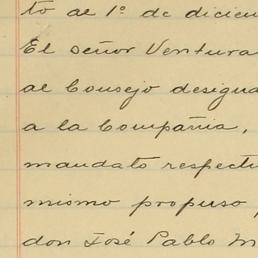 to al 1º de diciem
El señor Ventura
al Consejo desigua
a la Compañia,
mandato respecti
mismo propuso
don José Pablo M